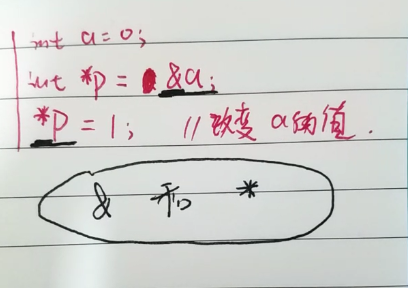 int a=0;
int *p = &a;
*p = 1; //改变 a的值.
& 和 *